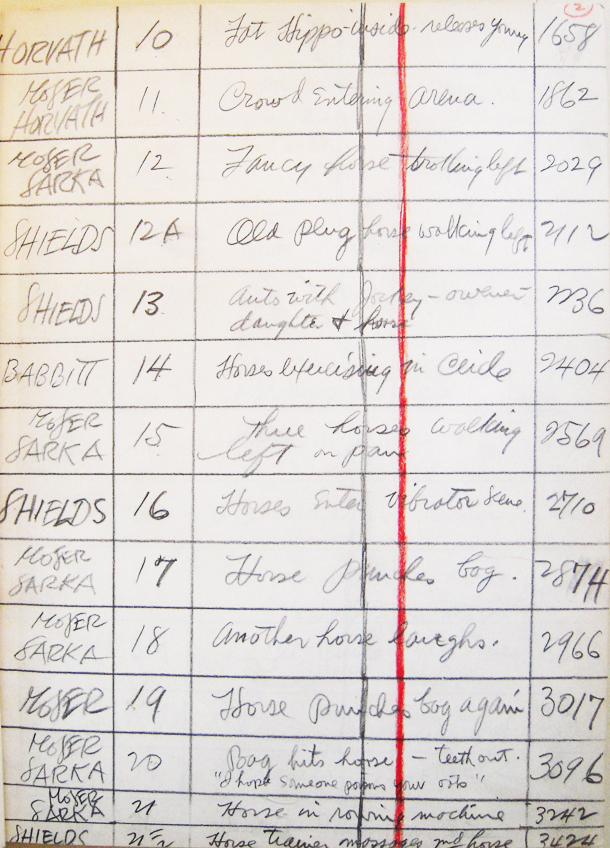 2
HORVATH 10 Fat Hippo-inside-releases young 1658
MOSER
HORVATH 11 Crowd Entering arena. 1862
MOSER
SARKA 12 Fancy horse trotting left 2029
SHIELDS 12A Old plug horse walking left 2112
SHIELDS 13 Auto with Jockey-owner
daughter & horse 2236
BABBITT 14 Horses exercising in 2404
MOSER
SARKA 15 three horses walking
left on pan 2569
SHIELDS 16 Horses Enter vibrator scene. 2710
MOSER
SARKA 17 Horse punches bag. 2874
MOSER
SARKA 18 Another horse laughs. 2966
MOSER 19 Horse punches bag again 3017
MOSER
SARKA 20 Bag hits horse - teeth out.
"I hope someone poisons your oats" 3096
MOSER
SARKA 21 Horse in rowing machine 3242
SHIELDS Horse trainer horse 3424